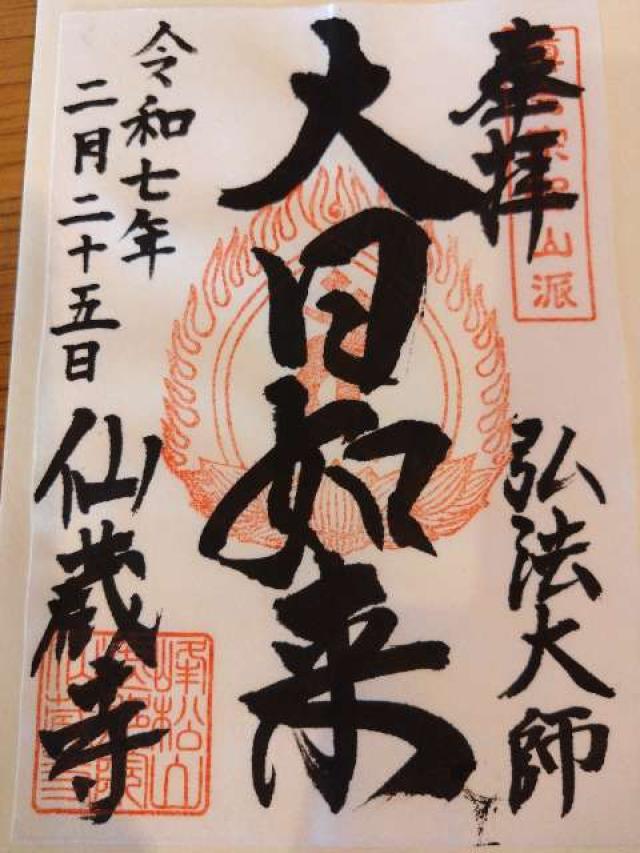 奉拝
弘法大師
大日如来
令和七年
二月二十五日
仙蔵寺